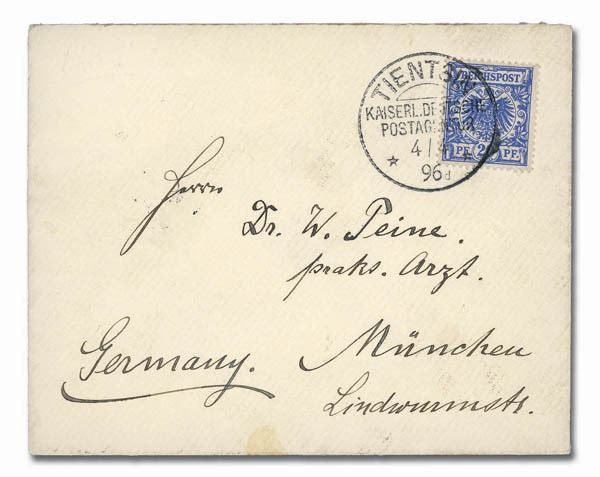 TIENTSIN
KAISERL. DEUTSCHE
POSTAGENTUR
4/4
96 a
REICHSPOST
PF. 20 PF.
Herrn
Dr. W. Peine.
prakt. Arzt.
München
Lindwurmstr.
Germany.